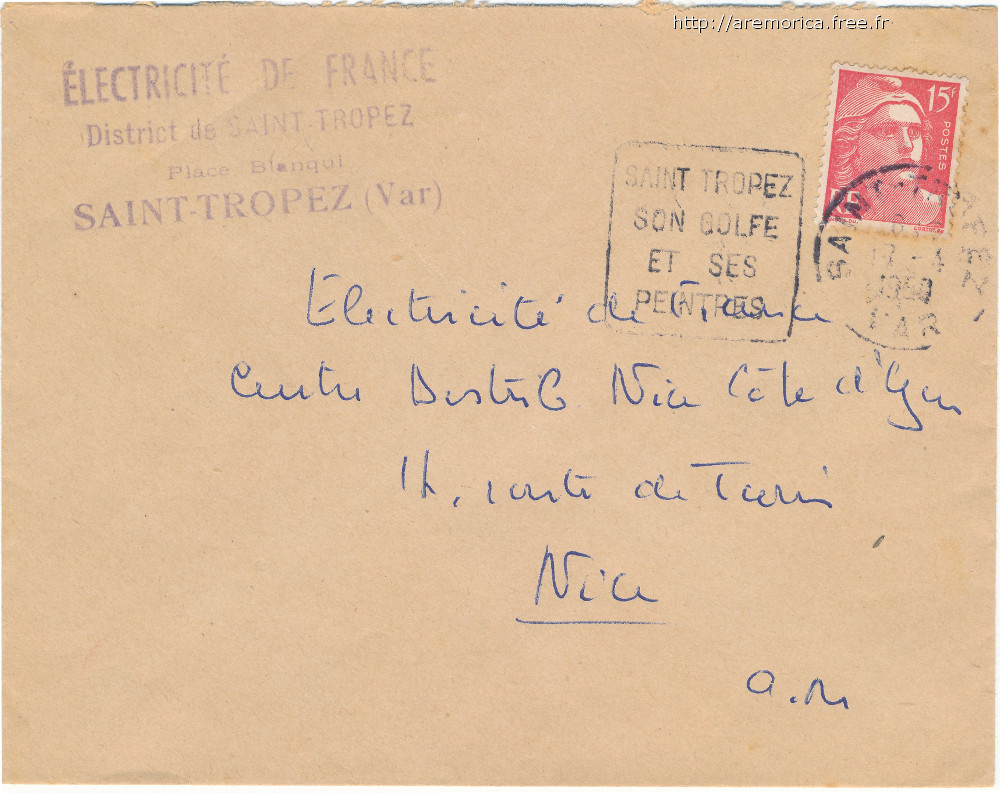 http://aremorica.free.fr
ÉLECTRICITÉ DE FRANCE
District de SAINT-TROPEZ
Place Blanqui
SAINT-TROPEZ (Var)
15F
POSTES
RF
SAINT TROPEZ
SON GOLFE
ET SES
PEINTRES
SAINT-TROPEZ
17 - 4
1950
VAR
Electricité de France
Centre Distrib Nice Côte d'Azur
14, route de Turin
Nice
a.m